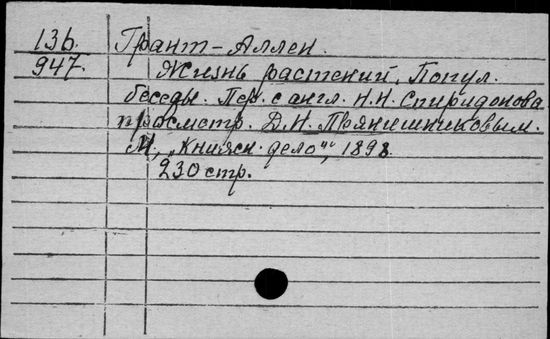 136. Грант-Аллен.
947. Жизнь растений. Попул.
беседы. Пер. с англ. Н.Н. Спиридонова
просмотр. Д.Н. Прянишниковым.
М., „Книжн. дело“, 1898.
230 стр.